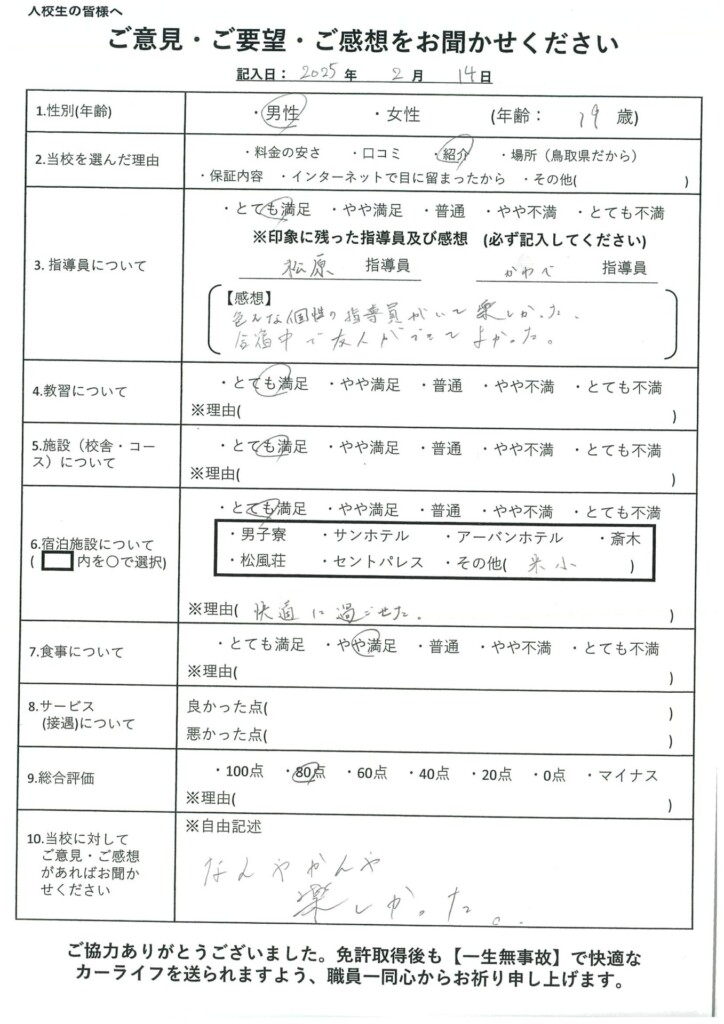 入校生の皆様へ
ご意見・ご要望・ご感想をお聞かせください
記入日： 2025 年 2 月 14 日
1.性別(年齢) ・男性 ・女性 (年齢： 19 歳)
2.当校を選んだ理由
・料金の安さ ・口コミ ・紹介 ・場所（鳥取県だから）
・保証内容 ・インターネットで目に留まったから ・その他( )
3. 指導員について
・とても満足 ・やや満足 ・普通 ・やや不満 ・とても不満
※印象に残った指導員及び感想 (必ず記入してください)
松原 指導員 かわべ 指導員
【感想】
色んな個性の指導員がいて楽しかった。
合宿中で友人ができてよかった。
4.教習について
・とても満足 ・やや満足 ・普通 ・やや不満 ・とても不満
※理由( )
5.施設（校舎・コー
ス）について
・とても満足 ・やや満足 ・普通 ・やや不満 ・とても不満
※理由( )
6.宿泊施設について
( 内を〇で選択)
・とても満足 ・やや満足 ・普通 ・やや不満 ・とても不満
・男子寮 ・サンホテル ・アーバンホテル ・斎木
・松風荘 ・セントパレス ・その他( 米小 )
※理由( 快適に過ごせた。 )
7.食事について
・とても満足 ・やや満足 ・普通 ・やや不満 ・とても不満
※理由( )
8.サービス
(接遇)について
良かった点( )
悪かった点( )
9.総合評価
・100点 ・80点 ・60点 ・40点 ・20点 ・0点 ・マイナス
※理由( )
10.当校に対して
ご意見・ご感想
があればお聞か
せください
※自由記述
なんやかんや
楽しかった。
ご協力ありがとうございました。免許取得後も【一生無事故】で快適な
カーライフを送られますよう、職員一同心からお祈り申し上げます。